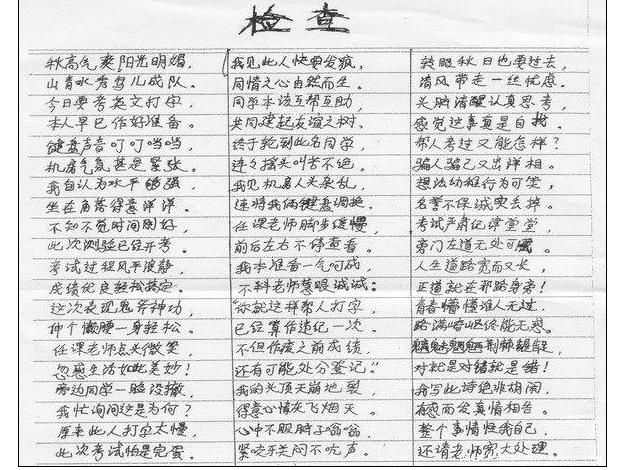 检查
秋高气爽阳光明媚，
山青水秀鸟儿成队。
今日要考英文打字，
本人早已作好准备。
键盘声音叮叮当当，
机房气氛甚是紧张。
我自认为水平够强，
坐在角落得意洋洋。
不知不觉时间刚好，
此次测验已经开考。
考试过程风平浪静，
成绩优良轻松搞定。
这次表现鬼斧神功，
伸个懒腰一身轻松。
任课老师点头微笑，
忽感生活如此美妙！
旁边同学一脸没辙，
我忙询问这是为何？
原来此人打字太慢，
此次考试怕是完蛋。
我见此人快要发疯，
同情之心由然而生。
同学本该互帮互助，
共同建起友谊之树。
终于轮到此名同学，
连连摇头叫苦不绝。
我见机房人头杂乱，
速将我俩键盘调换。
任课老师脚步缓慢，
前后左右不停查看。
我本准备一气呵成，
不料老师慧眼诚诚：
“你就这样帮人打字，
已经算作违纪一次。
不但作废之前成绩，
还有可能处分登记。”
我的头顶天崩地裂，
得意心情灰飞烟灭。
心中不服脖子嗡嗡，
紧咬牙关闷不吭声。
转眼秋日也要过去，
清风带走一丝忧虑。
头脑清醒认真思考，
感觉这事真是自找。
帮人考过又能怎样？
骗人骗己又出洋相。
想法幼稚行为可笑，
名誉不保诚实丢掉。
考试严肃纪律堂堂，
旁门左道无处可藏。
人生道路宽而又长，
正道就在那路身旁！
青春懵懂谁人无过，
路满崎岖终能无惑。
对就是对错就是错！
我写此诗绝非胡闹，
有感而发真情相告。
整个事情怪我自己，
还请老师宽大处理。